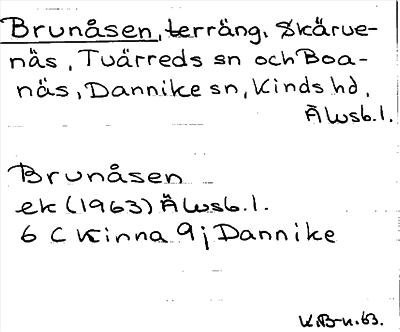 Brunåsen, terräng, Skärve-
näs, Tvärreds sn och Boa-
näs, Dannike sn, Kinds hd,
Älvsb. l.
Brunåsen
ek (1963) Älvsb. l.
6 C Kinna 9j Dannike
K.B-n. 63.